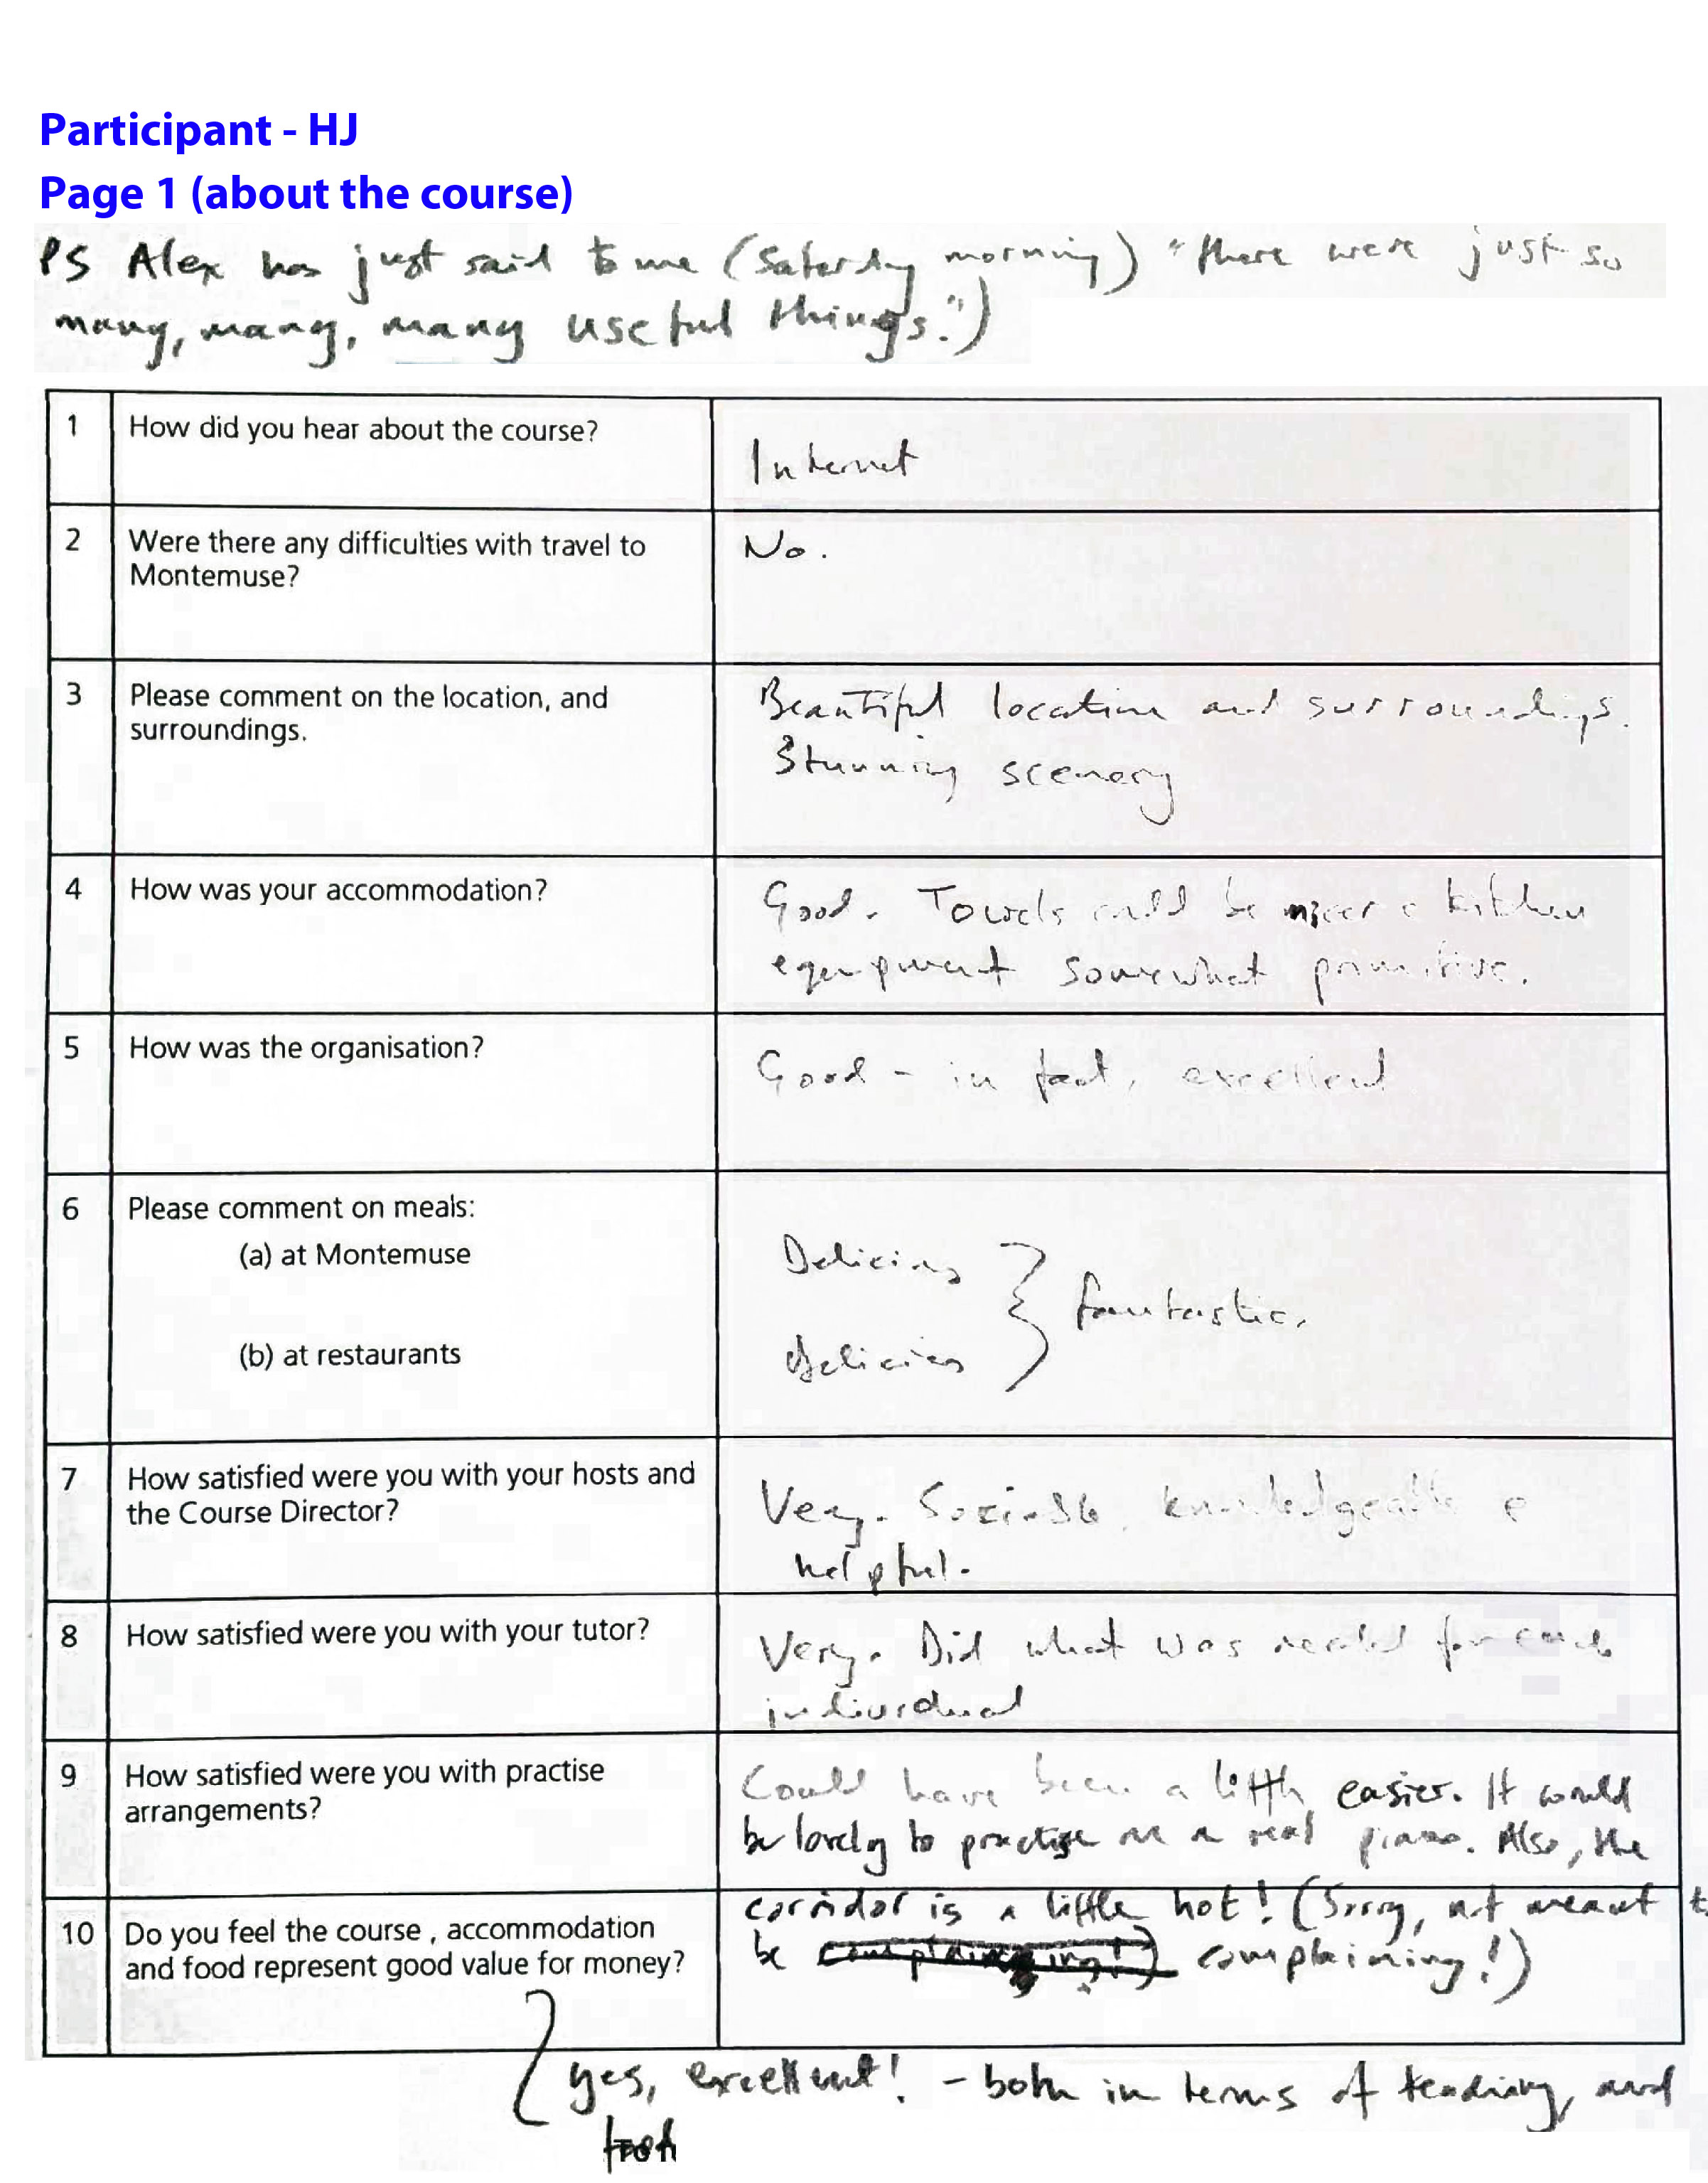 Participant - HJ
Page 1 (about the course)
PS Alex has just said to me (Saturday morning) "there were just so
many, many, many useful things.")
1 How did you hear about the course?
Internet
2 Were there any difficulties with travel to
Montemuse?
No.
3 Please comment on the location, and
surroundings.
Beautiful location and surroundings.
Stunning scenery
4 How was your accommodation?
Good. Towels could be nicer & kitchen
equipment somewhat primitive.
5 How was the organisation?
Good - in fact, excellent
6 Please comment on meals:
(a) at Montemuse
Delicious
fantastic.
(b) at restaurants
delicious
7 How satisfied were you with your hosts and
the Course Director?
Very. Sociable, knowledgeable &
helpful.
8 How satisfied were you with your tutor?
Very. Did what was needed for each
individual
9 How satisfied were you with practise
arrangements?
Could have been a little easier. It would
be lovely to practise on a real piano. Also, the
corridor is a little hot! (Sorry, not meant
be complaining!)
10 Do you feel the course , accommodation
and food represent good value for money?
yes, excellent! - both in terms of teaching, and